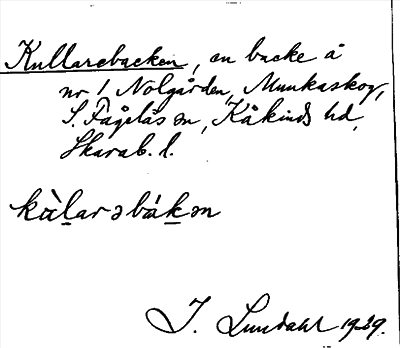 Kullarebacken, en backe å
nr 1 Nolgården, Munkaskog,
S. Fågelås sn, Kåkinds hd,
Skarab. l.
kùlarəbákən
I. Lundahl 1929.